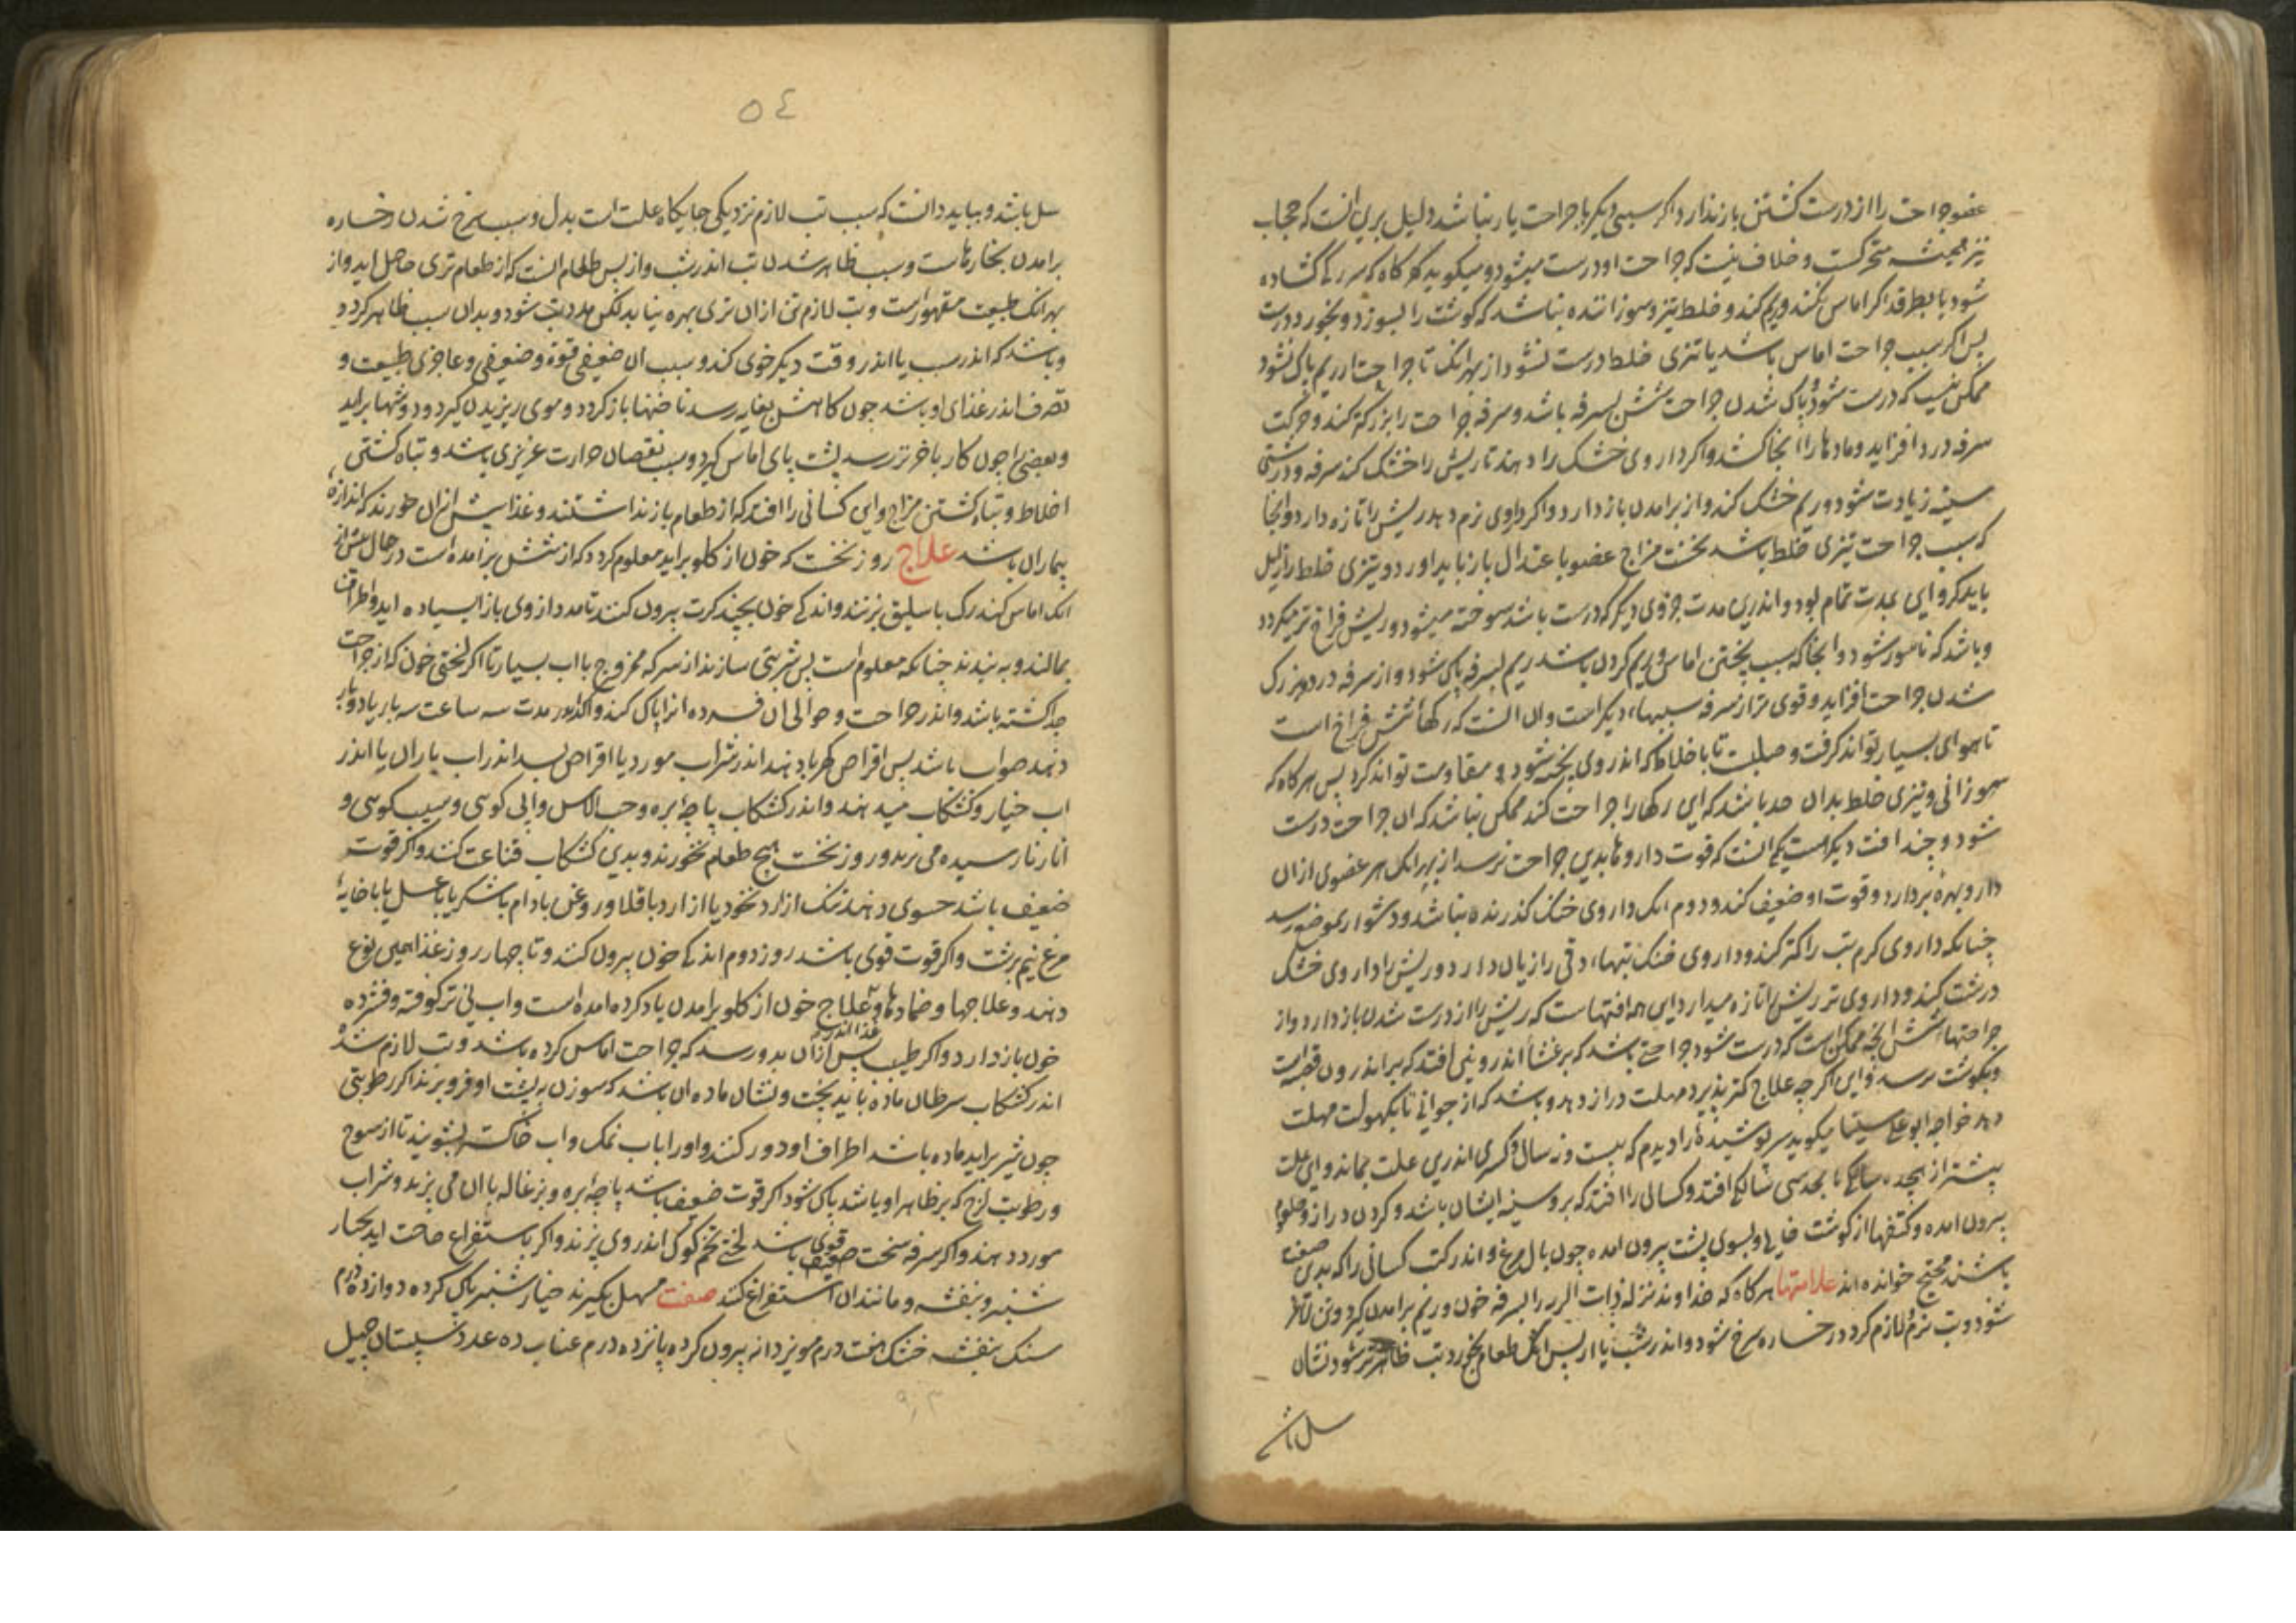 عضو جراحت را از درست کشتن باز ندارد اکر سببی دیکر با جراحت یار نباشد دلیل بری انست که حجاب
نیز همیشه متحرکست و خلاف نیست که جراحت او درست میشود و میکوید که هرکاه که سر رک کشاده
شود یا بطرقد اکر اماس نکند و ریم نکند و خلط تیز و سوزاننده نباشد که کوشت را بسوزد و بخورد درست
بس اکر سبب جراحت اماس باشد یا تیزی خلط درست نشود از بهر انک تا جراحت از ریم باک نشود
ممکن نیست که درست شود و باک شدن جراحت شش بسرفه باشد و سرفه جراحت را بزرکتر کند و حرکت
سرفه درد افزاید و مادها را انجا کشد و اکر داروی خشک را دهند تا ریش را خشک کند سرفه و درشتی
سینه زیادت شود و ریم خشک کند و از برامدن باز دارد و اکر داروی نرم دهد ریش را تازه دارد و انجا
که سبب جراحت تیزی خلط باشد نخست مزاج عضو باعتدال باز باید اورد و تیزی خلط زایل
باید کرد و این بمدت تمام بود و اندرین مدت جزوی دیکر که درست باشد سوخته میشود و ریش فراخ تر میکردد
و باشد که ناسور شود و انجا که سبب پختن اماس و ریم کردن باشد ریم بسرفه باک شود و از سرفه درد و بزرک
شدن جراحت افزاید و قوی تر از سرفه سببها، دیکر است و ان انست که رکهاء شش فراخ است
تا هوای بسیار تواند کرفت و صلبست تا با خلاط که اندر وی بخته شود و مقاومت تواند کرد بس هرکاه که
سوزانی و تیزی خلط بدان حد باشد که این رکها را جراحت کند ممکن نباشد که ان جراحت درست
شود و چند افت دیکر است یکی انست که قوت داروها بدین جراحت نرسد از بهر انک هر عضوی ازان
دارو بهره بردارد و قوت او ضعیف کند و دوم انک داروی خنک کذرنده نباشد و دشوار بموضع رسد
چنانکه داروی کرم تب را کرم کند و داروی خنک تبها، دقی را زیان دارد و ریش را داروی خشک
درشت کند و داروی تر ریش را تازه میدارد این همه افتهاست که ریش را از درست شدن باز دارد و از
جراحتها شش انچه ممکن است که درست شود جراحتی باشد که بر غشاء اندرونی افتد که بر اندرون قصبه است
و بکوشت نرسد و این اکرچه علاج کمتر پذیرد مهلت دراز دهد و باشد که از جوانی تا بکهولت مهلت
دهد خواجه ابو علی سینا میکوید سر پوشیده را دیدم که بیست و نه سال و کسری اندرین علت بماند و این علت
پیشتر از هجده سالکی تا بحد سی سالکی افتد و کسانی را افتد که بر و سینه ایشان باشد و کردن دراز و حلقوم
بیرون امده و کتفها از کوشت خالی و بسوی پشت بیرون امده چون بال مرغ و اندر کتب کسانی را که بدین صفت
باشند مجنح خوانده اند علامتها هرکاه که خداوند نزله ذات الریه را بسرفه خون و ریم برامدن کیرد و تن لاغر
شود و تب نرم و لازم کردد رخساره سرخ شود و اندر شب یا از پس انک طعام بخورد تب ظاهرتر شود نشان
سل باشد
٥٤
سل باشد و بباید دانست که سبب تب لازم نزدیکی جایکاه علت است بدل و سبب سرخ شدن رخساره
برامدن بخارهاست و سبب ظاهر شدن تب اندر شب و از بس طعام انست که از طعام تری حاصل اید و از
بهر انک طبیعت مقهور است و تب لازم تن ازان تری بهره نیابد لکن مدد تب شود و بدان سبب ظاهر کردد
و باشد که اندر شب یا اندر وقت دیکر خوی کند و سبب ان ضعیفی قوة و ضعیفی و عاجزی طبیعت و
تصرف اندر غذای او باشد چون کاهش بغایه رسد ناخنها باز کردد و موی ریزیدن کیرد و دوشها براید
و بعضی را چون کار باخر تر رسد پشت پای اماس کیرد و سبب نقصان حرارت غریزی باشد و تباه کشتن
اخلاط و تباه کشتن مزاج و این کسانی را افتد که از طعام باز نداشتند و غذا بیش ازان خورند که اندازه
بیماران باشد علاج روز نخست که خون از کلو براید معلوم کردد که از شش برامده است در حال پیش از
انک اماس کند رک باسلیق بزنند و اندک خون بچند کرت بیرون کنند تا مدد از وی باز ایستاده اید و اطراف
بمالند و ببندند چنانکه معلوم است پس شربتی سازند از سرکه ممزوج با اب بسیار تا اکر لختی خون که از جراحت
جدا کشته باشد و اندر جراحت و حوالی ان فسرده انرا باک کند و اکر اندر مدت سه ساعت سه بار یا دو بار
دهند صواب باشد بس اقراص کهربا دهند اندر شراب مورد یا اقراص بسد اندر اب باران یا اندر
اب خیار و کشکاب میدهند و اندر کشکاب پاچه بره و حب الاس و ابی کوسی و سیب کوسی و
انار نارسیده می پزند و روز نخست هیچ طعام نخورند و بدین کشکاب قناعت کنند و اکر قوت
ضعیف باشد حسوی دهند تنک از ارد نخود یا از ارد باقلا و روغن بادام با شکر یا با عسل یا با خایه
مرغ نیم برشت و اکر قوت قوی باشد روز دوم اندک خون بیرون کنند و تا چهار روز غذا همین نوع
دهند و علاجها و ضمادها و علاج خون از کلو برامدن یاد کرده امده است و اب لنی تر کوفته و فشرده
خون باز دارد و اکر طبیب پس ازان بدو رسد که جراحت اماس کرده باشد و تب لازم شد غذا اندر
اندر کشکاب سرطان ماده باید پخت و نشان ماده ان باشد که سوزن به پشت او فرو برند اکر رطوبتی
چون شیر براید ماده باشد اطراف او دور کنند و او را باب نمک و اب خاکستر بشویند تا از سوح
و رطوبت لزج که بر ظاهر او باشد باک شود اکر قوت ضعیف باشد پاچه بره و بزغاله با ان می پزند و شراب
مورد دهند و اکر سرفه سخت قوی باشد لختی تخم کوک اندر وی پزند و اکر باستفراغ حاجت اید بخیار
شنبر و بنفشه و مانند ان استفراغ کنند صفت مسهل بکیرند خیار شنبر باک کرده دوازده درم
سنک بنفشه خشک هفت درم مویز دانه بیرون کرده پانزده درم عناب ده عدد سپستان چهل